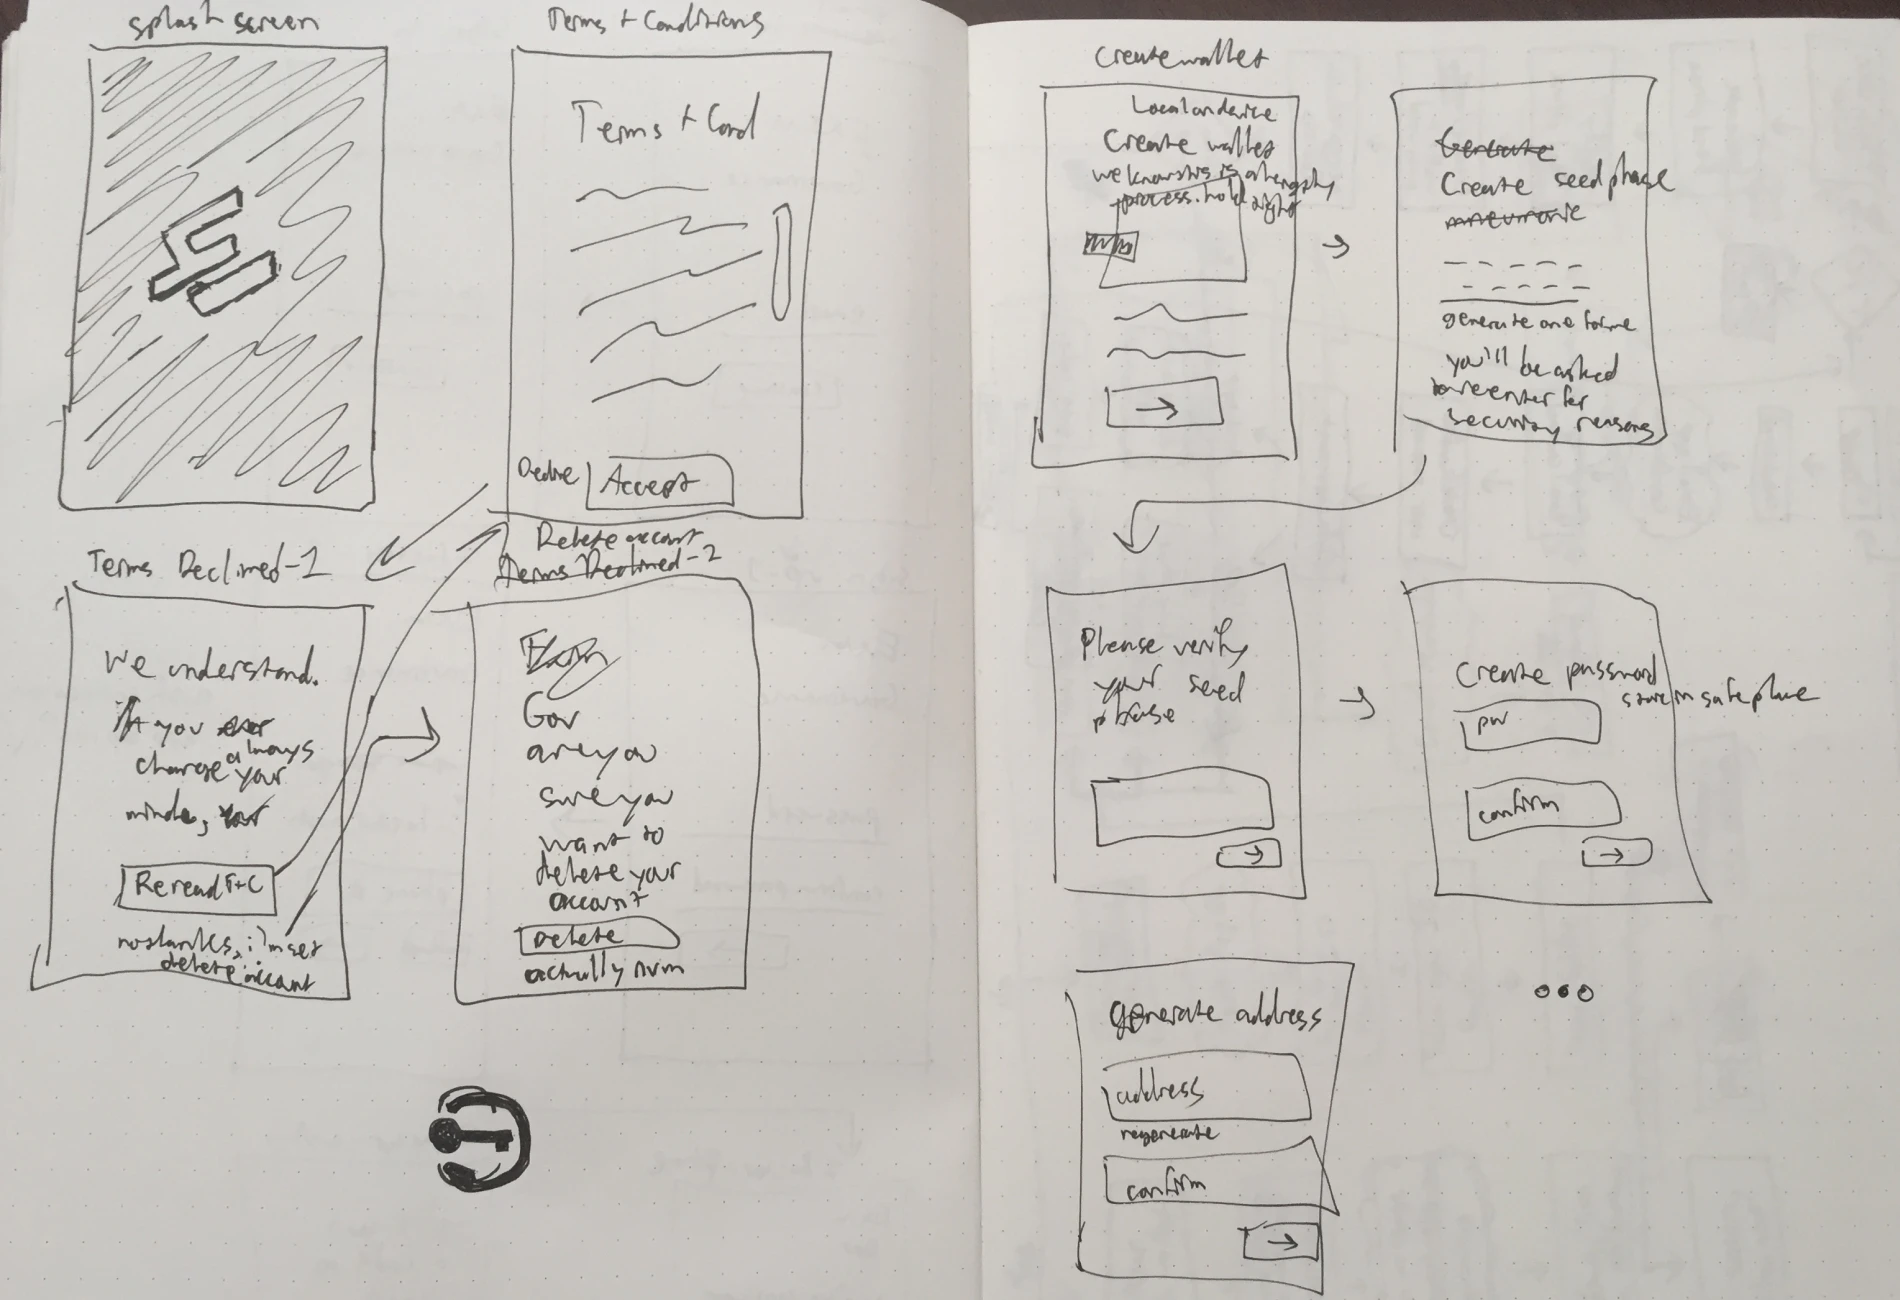 splash screen
Terms + Conditions
Terms + Cond
Decline
Accept
Terms Declined-1
We understand.
If you
always
change your
minde,
Reread T+C
no thanks, i'm set
delete account
Delete account
Terms Declined-2
are you
sure you
want to
delete your
account
Delete
actually nvm
Create wallet
Local on device
Create wallet
we know this is a lengthy
process. hold tight
Generate
Create seed phase
mneumonic
generate one for me
you'll be asked
to reenter for
security reasons
Please verify
your seed
phrase
Create password
store in safe place
pw
confirm
generate address
address
regenerate
confirm